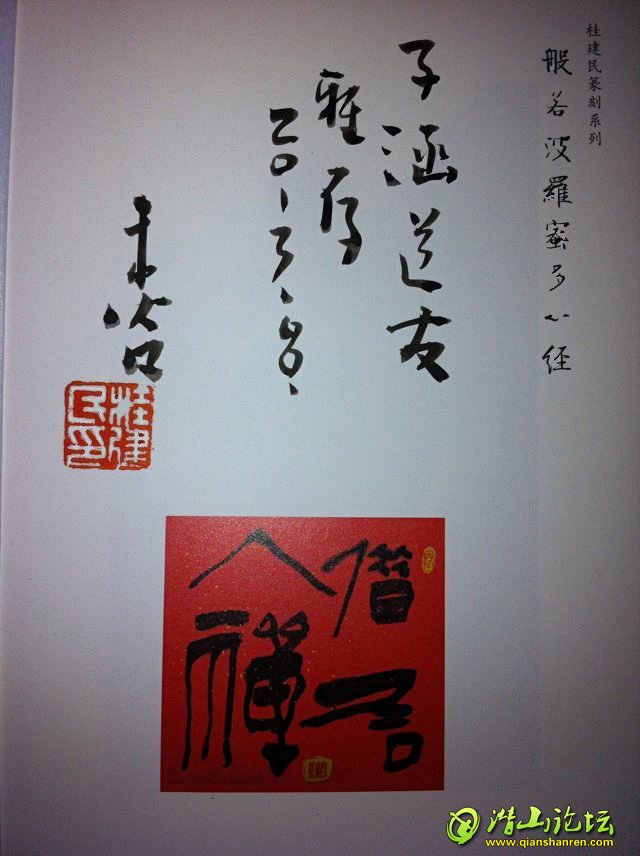 桂建民篆刻系列
般若波羅蜜多心经
子涵道友
雅存
桂建民印
借言
入禪
潜山论坛
www.qianshanren.com